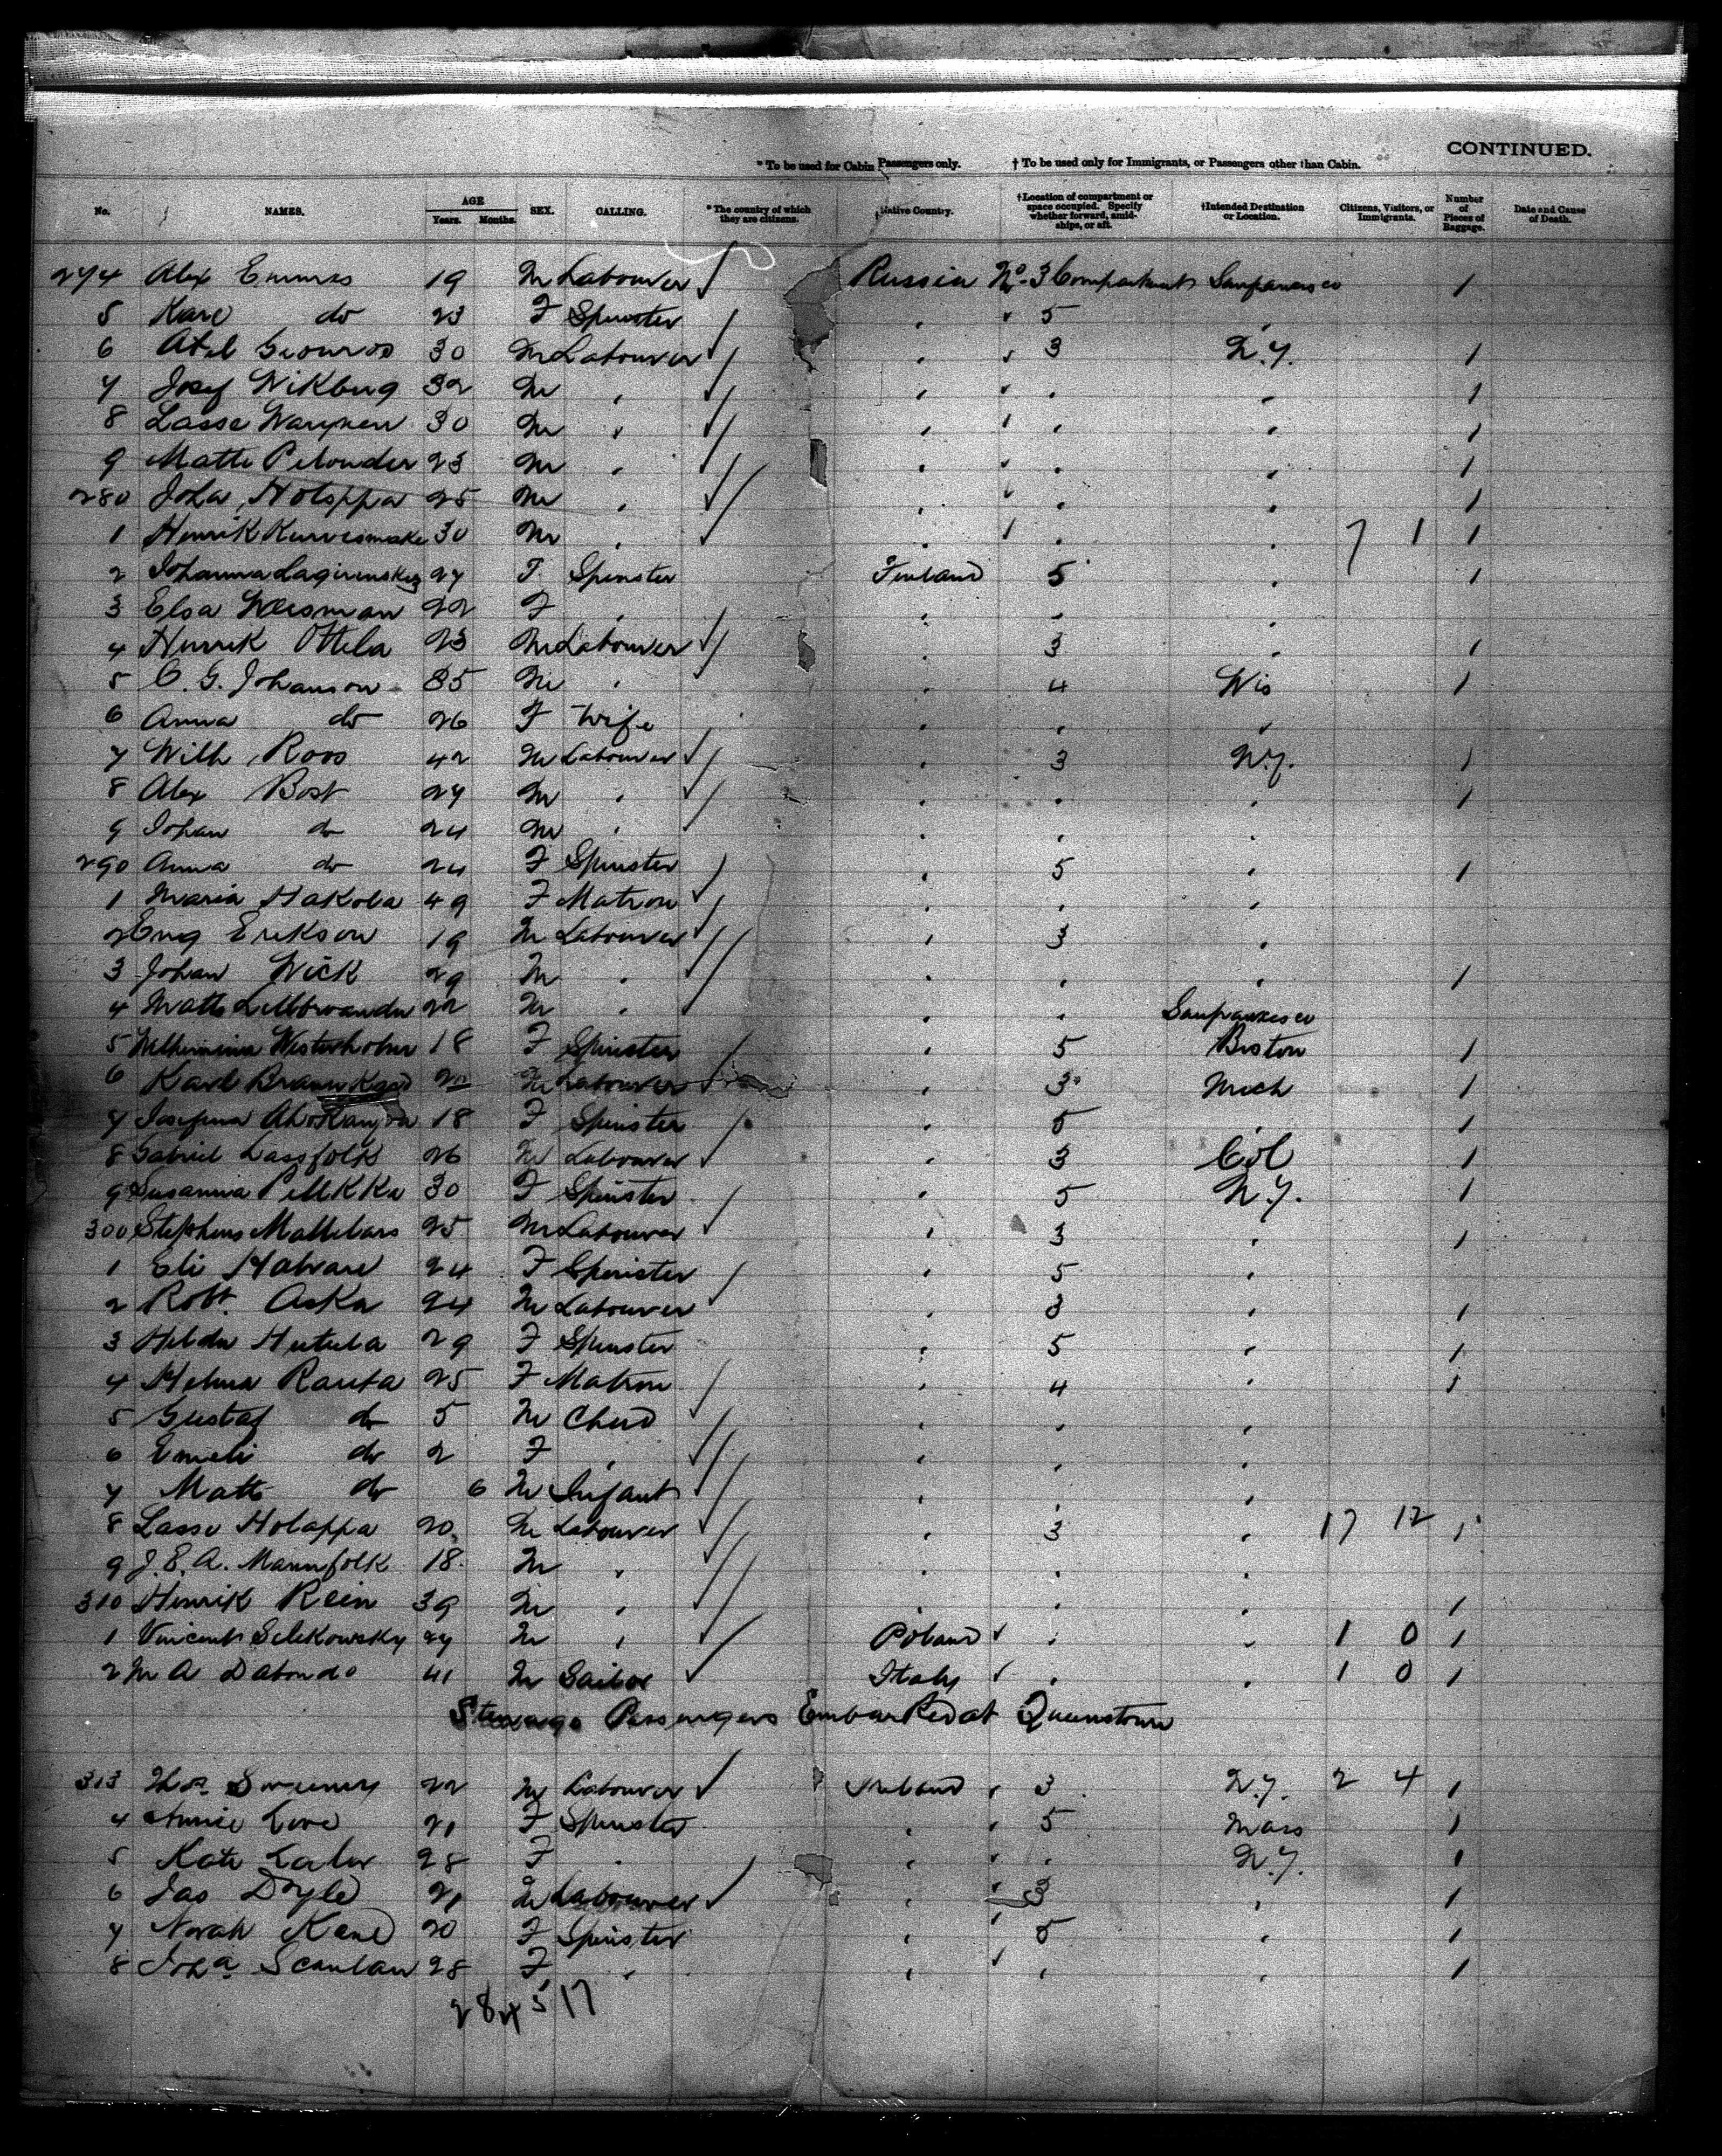 CONTINUED.
* To be used for Cabin Passengers only. † To be used only for Immigrants, or Passengers other than Cabin.
No. NAMES. AGE Years. Months. SEX. CALLING. * The country of which they are citizens. Native Country. † Location of compartment or space occupied. Specify whether forward, amidships, or aft. † Intended Destination or Location. Citizens, Visitors, or Immigrants. Number of Pieces of Baggage. Date and Cause of Death.
274 Alex 19 M Labourer Russia No. 3 Compartment Sanfrancisco 1
5 do 23 F Spinster " " 5 "
6 30 M Labourer " " 3 N.Y. 1
7 Josef Wikberg 32 M " " " " " 1
8 Lasse 30 M " " " " " 1
9 Matts 23 M " " " " " 1
280 Joha Holappa 25 M " " " " " 1
1 Henrik 30 M " " " " " 7 1 1
2 Johanna 27 F Spinster Finland 5 " 1
3 Elsa 22 F " " " "
4 Henrik Ottela 23 M Labourer " 3 " 1
5 C. G. Johanson 35 M " " 4 Wis 1
6 Anna do 26 F Wife " " "
7 Wilh Roos 42 M Labourer " 3 N.Y. 1
8 Alex Bost 27 M " " " " 1
9 Johan do 24 M " " " "
290 Anna do 24 F Spinster " 5 " 1
1 Maria Hakola 49 F Matron " " "
2 Erikson 19 M Labourer " 3 "
3 Johan Wick 29 M " " " " 1
4 Matts 22 M " " " Sanfranzisco
5 18 F Spinster " 5 Boston 1
6 Karl 22 M Labourer " 3 Mich 1
7 Josefina 18 F Spinster " 5 " 1
8 Gabriel Lassfolk 26 M Labourer " 3 Col 1
9 Susanna 30 F Spinster " 5 N.Y. 1
300 25 M Labourer " 3 " 1
1 Eli 24 F Spinster " 5 "
2 Robt. Aska 24 M Labourer " 3 " 1
3 Hilda 29 F Spinster " 5 " 1
4 Rauta 25 F Matron " 4 " 1
5 Gustaf do 5 M Child " " "
6 Emeli do 2 F " " " "
7 Matts do 6 M Infant " " "
8 Lasse Holappa 20 M Labourer " 3 " 17 12 1
9 J. E. A. Mannfolk 18 M " " " "
310 Henrik Rein 39 M " " " " 1
1 Vincent 27 M " Poland " " 1 0 1
2 M A Dabondo 41 M Sailor Italy " " 1 0 1
Steerage Passengers Embarked at Queenstown
313 Thos Sweeney 22 M Labourer Ireland " 3 N.Y. 2 4 1
4 Annie 21 F Spinster " " 5 Mass 1
5 Kate 28 F " " " " N.Y. 1
6 Jas Doyle 21 M Labourer " " 3 " 1
7 Norah Kane 20 F Spinster " " 5 " 1
8 Joha Scanlan 28 F " " " " " 1